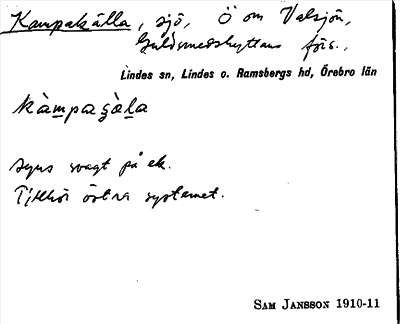 Kampakälla, sjö, Ö om Valsjön,
Guldsmedshyttans förs.,
Lindes sn, Lindes o. Ramsbergs hd, Örebro län
kàmpaʂàla
syns svagt på ek.
Tillhör östra systemet.
SAM JANSSON 1910-11